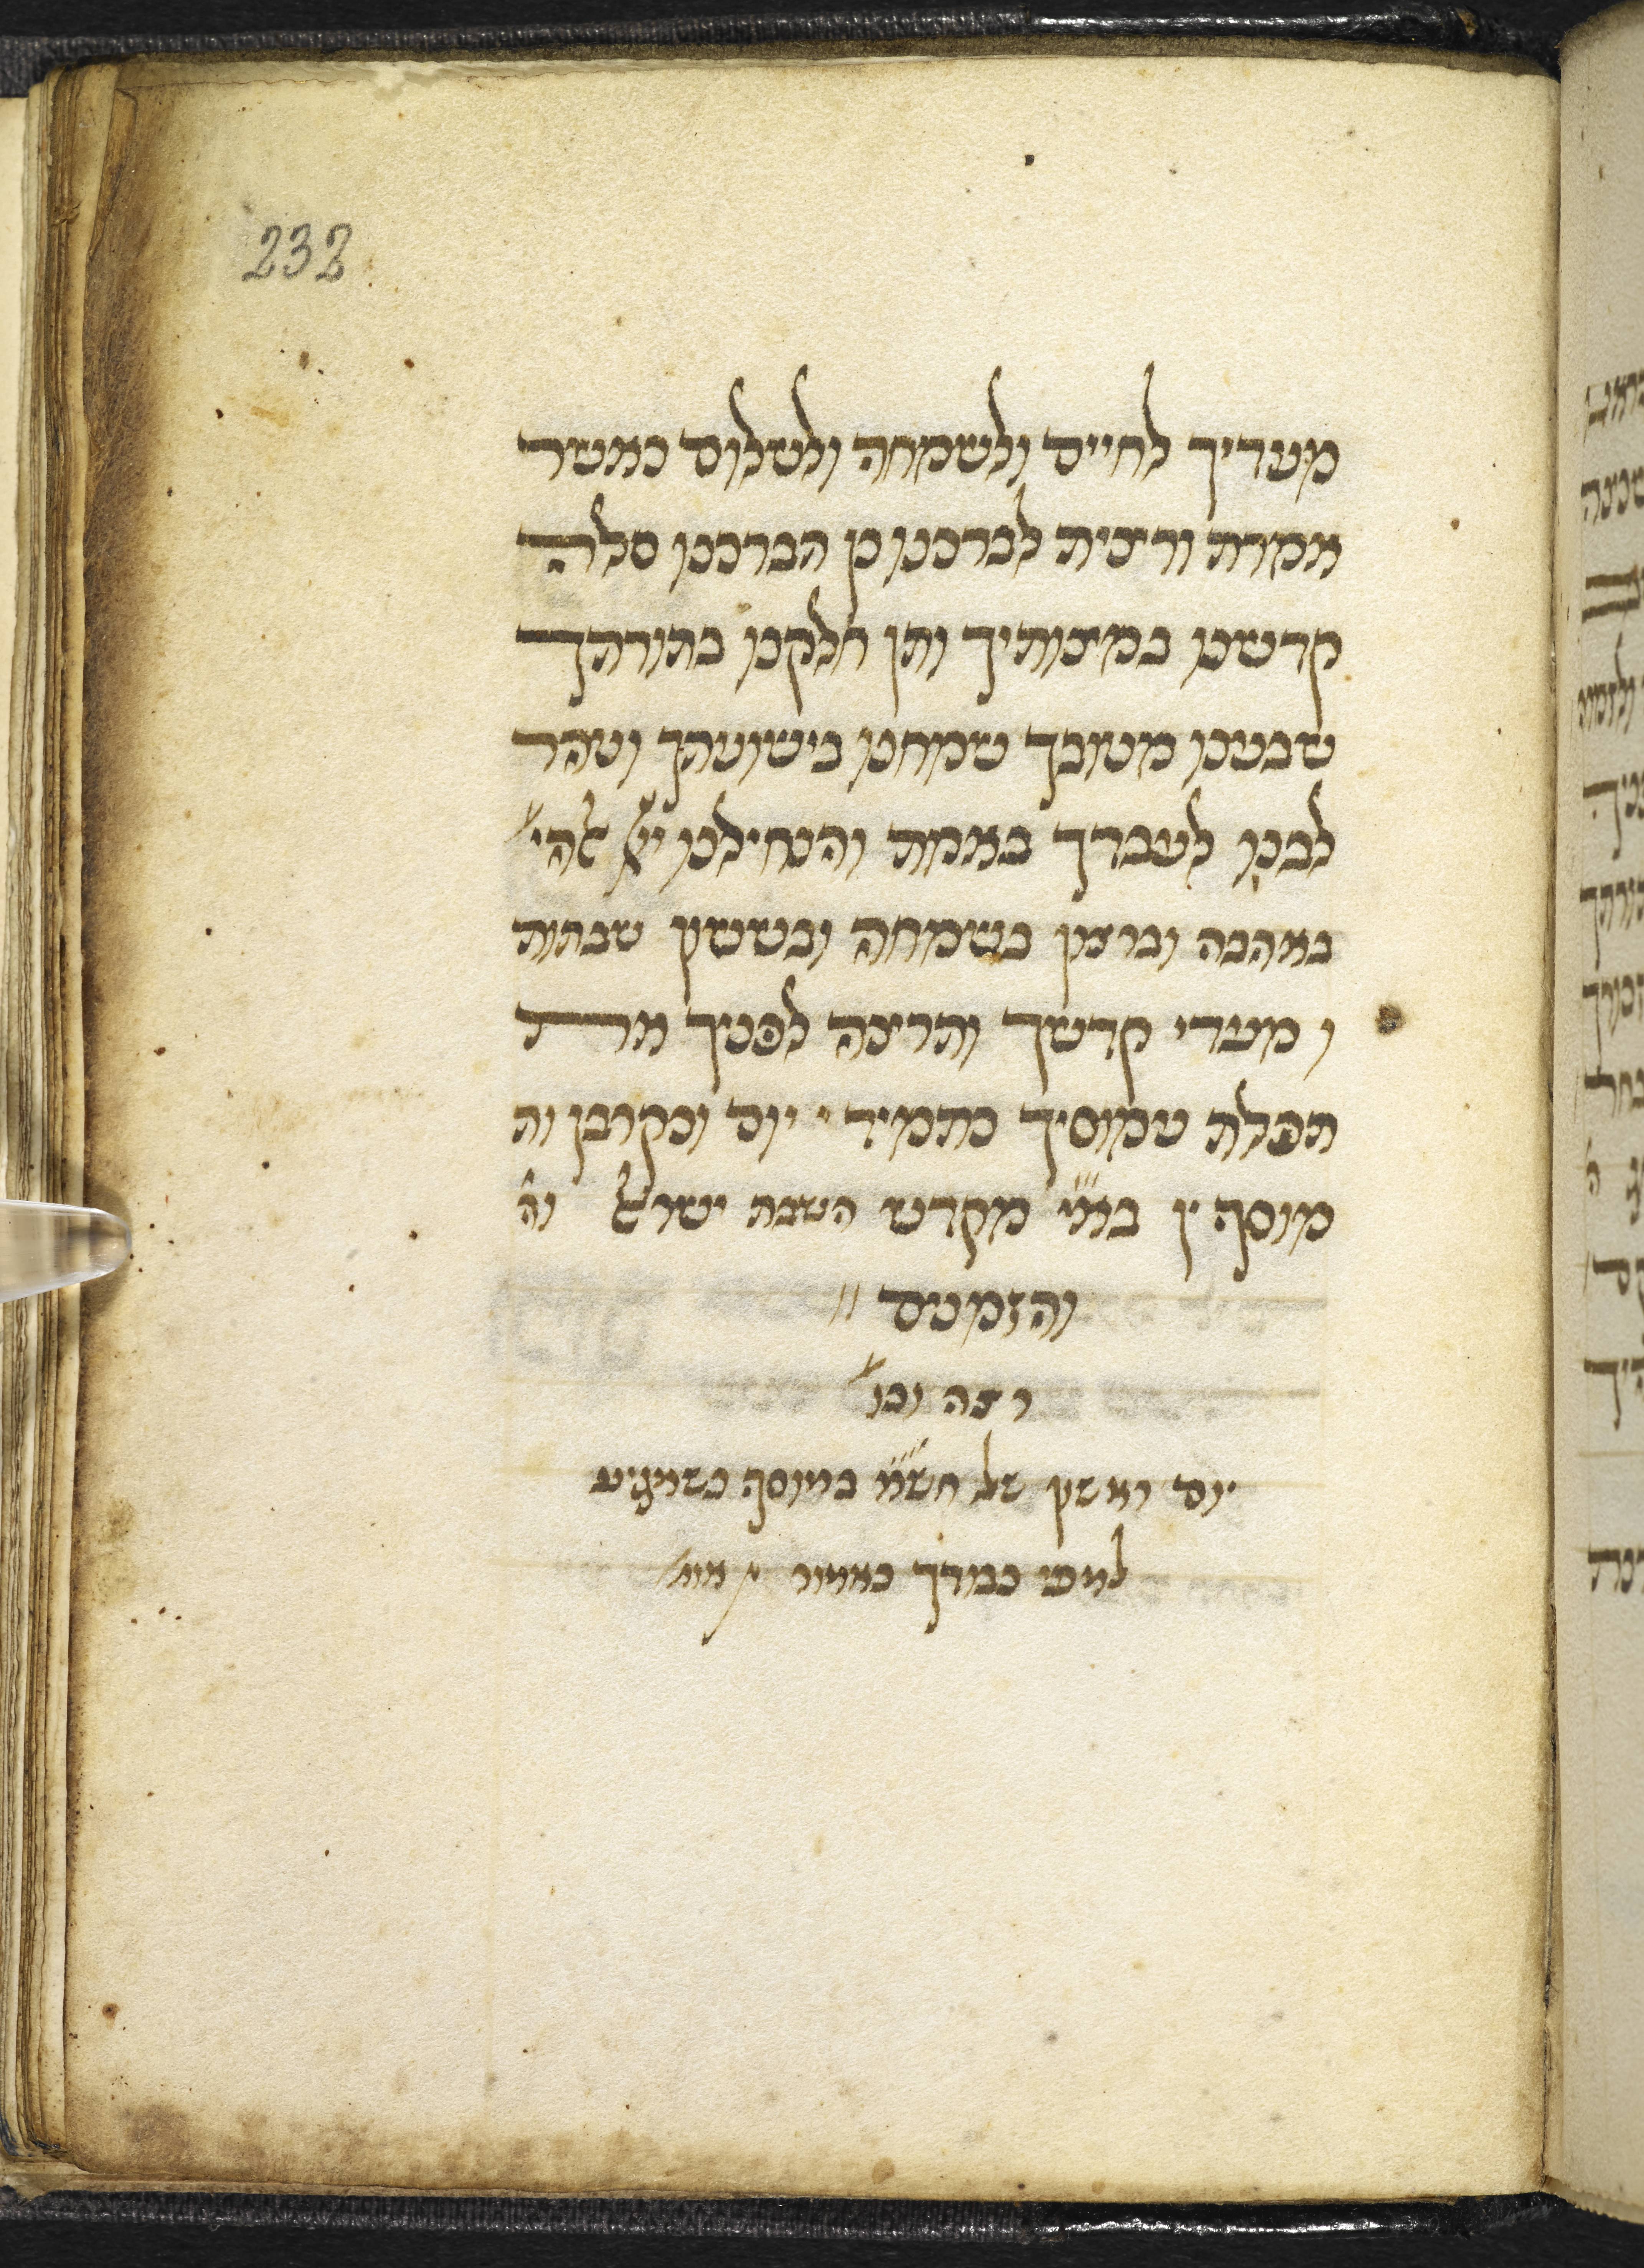 232
מעדיך לחיים ולשמחה ולשלום כאשר
אמרת ורצית לברכנו כן הברכנו סלה
קדשנו במצותיך ותן חלקנו בתורתך
שבענו מטובך שמחנו בישועתך וטהר
לבנו לעבדך באמת והנחילנו יי׳ אלהי׳
באהבה וברצון בשמחה ובששון שבתות
ומעדי קדשך ותרצה לפניך את
תפלת שמוסיך כתמידי יום וכקרבן וה
מוסף ין באיי מקדש השבת ישראל וה׳
והזמנים
רצה וכו׳
יום ראשון של חש״מ במוסף כשמגיע
לומ׳ כבודך כאמור